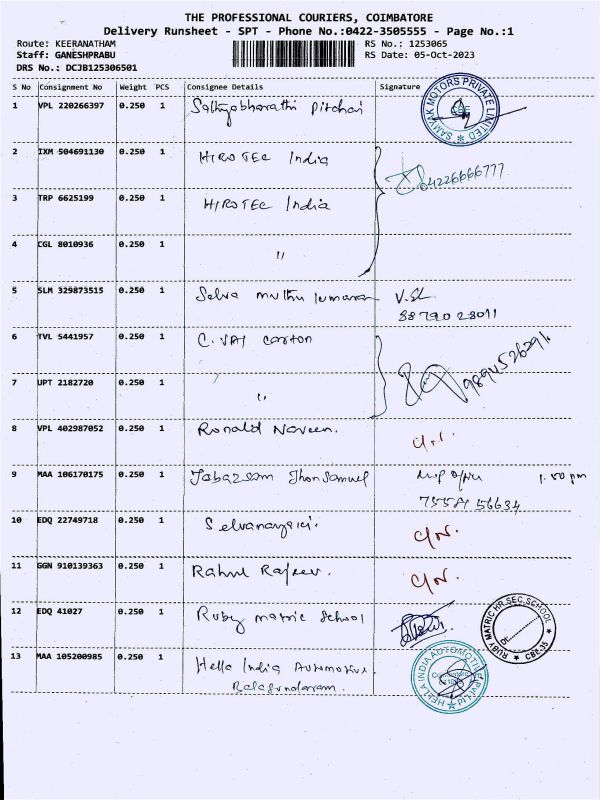 THE PROFESSIONAL COURIERS, COIMBATORE
Delivery Runsheet - SPT - Phone No.:0422-3505555 - Page No.:1
Route: KEERANATHAM RS No.: 1253065
Staff: GANESHPRABU RS Date: 05-Oct-2023
DRS No.: DCJB125306501
S No Consignment No Weight PCS Consignee Details Signature
1 VPL 220266397 0.250 1 Sathyabharathi Pitchai
SAMYAK MOTORS PRIVATE LIMITED CBE
2 IXM 504691130 0.250 1 HIROTEC India
04226666777
3 TRP 6625199 0.250 1 HIROTEC India
4 CGL 8010936 0.250 1 "
5 SLM 329873515 0.250 1 Selva muthu kumaran
6 TVL 5441957 0.250 1 C. VAJ carton
7 UPT 2182720 0.250 1 "
8 VPL 402987052 0.250 1 Ronald Naveen.
9 MAA 106170175 0.250 1 Jabazsam Jhon Samuel
10 EDQ 22749718 0.250 1
11 GGN 910139363 0.250 1 Rahul Rajeev.
12 EDQ 41027 0.250 1 Ruby matric School
RUBY MATRIC HR.SEC.SCHOOL CBE-35
13 MAA 105200985 0.250 1 Hella India Automotive
HELLA INDIA AUTOMOTIVE PVT